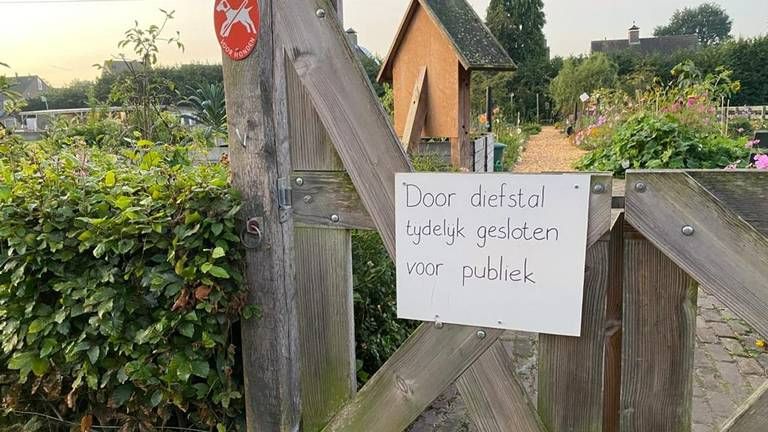 voor honden
Door diefstal
tydelyk gesloten
voor publiek